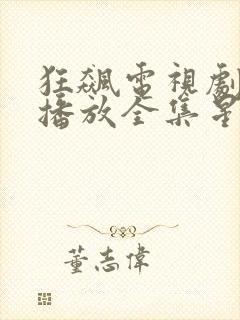 狂飆電視劇
播放全集星
董志偉